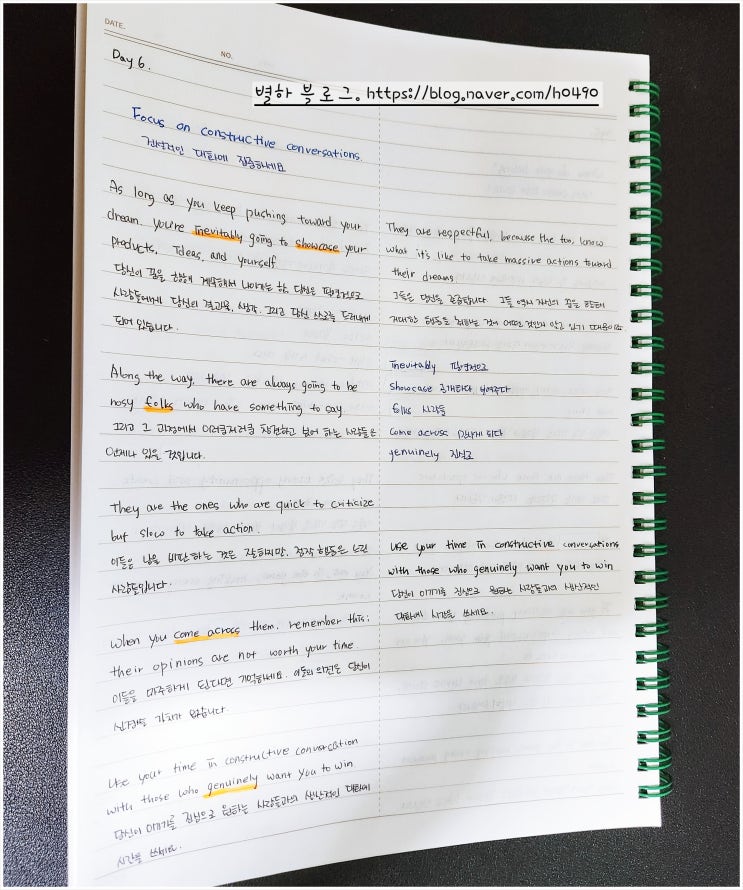 DATE.
NO.
Day 6.
별하 블로그. https://blog.naver.com/h0490
Focus on constructive conversations.
건설적인 대화에 집중하세요
As long as you keep pushing toward your
dream, you're inevitably going to showcase your
products, ideas, and yourself
당신이 꿈을 향해 계속해서 나아가는 한, 당신은 필연적으로
사람들에게 당신의 결과물, 생각, 그리고 당신 스스로를 드러내게
되어 있습니다.
Along the way, there are always going to be
nosy folks who have something to say
그리고 그 과정에서 이러쿵저러쿵 참견하고 싶어 하는 사람들은
언제나 있을 것입니다.
They are the ones who are quick to criticize
but slow to take action.
이들은 남을 비판하는 것은 잘하지만, 정작 행동은 느린
사람들입니다.
When you come across them, remember this;
their opinions are not worth your time
이들을 마주하게 된다면 기억하세요. 이들의 의견은 당신이
신경쓸 가치가 없습니다.
Use your time in constructive conversation
with those who genuinely want you to win
당신이 이기기를 진심으로 원하는 사람들과의 생산적인 대화에
시간을 쓰세요.
They are respectful, because the too, know
what it's like to take massive actions toward
their dreams.
그들은 당신을 존중합니다. 그들 역시 자신의 꿈을 향해
거대한 행동을 취하는 것이 어떤 것인지 알고 있기 때문이죠
inevitably 필연적으로
showcase 공개하다 보여주다
folks 사람들
come across 만나게 되다
genuinely 진심으
Use your time in constructive conversations
with those who genuinely want you to win
당신이 이기기를 진심으로 원하는 사람들과의 생산적인
대화에 시간을 쓰세요.